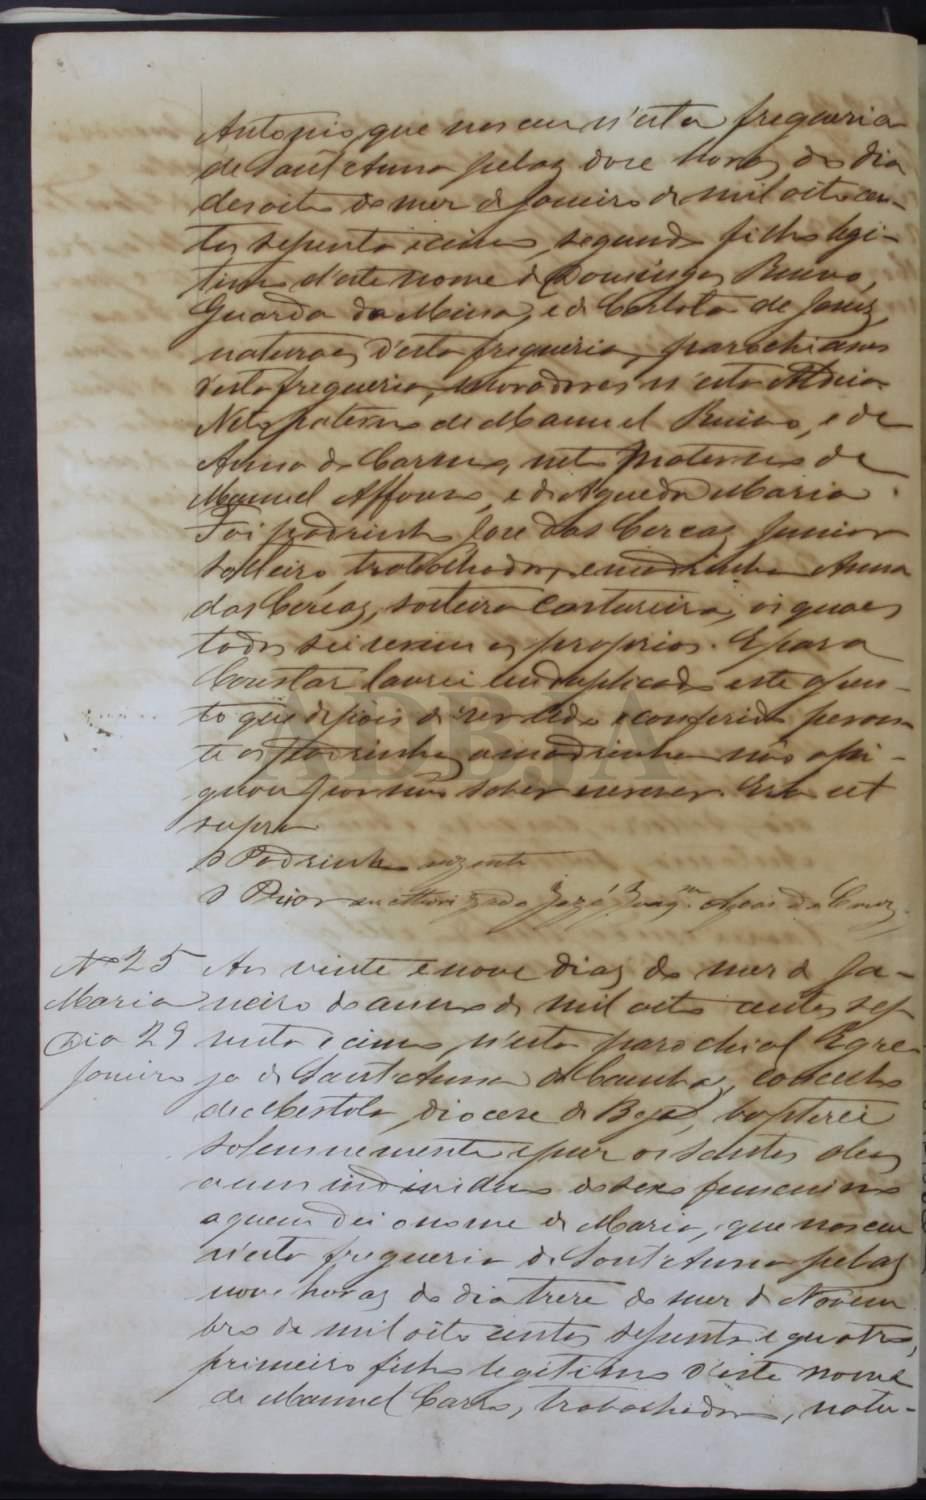 Antonio, que nasceu n'esta freguesia
de Sant'Anna pelas doze horas do dia
desoito do mez de Janeiro de mil oito cen-
tos septenta e cinco, segundo filho legi-
timo d'este nome de Domingos Ruivo,
Guarda da Mina, e de Carlota de Jesus,
naturaes d'esta freguesia, parochianos
d'esta freguesia, moradores n'esta Aldeia
Neto paterno de Manuel Ruivo, e de
Anna do Carmo, neto materno de
Manuel Affonso, e de Agueda Maria.
Foi padrinho José das Junior
solteiro, trabalhador, e madrinha Anna
das solteira costureira, os quaes
todos sei serem os proprios. E para
Constar lavrei em duplicado este assen-
to que depois de ser lido e conferido peran-
te os padrinhos, a madrinha não assi-
gnou por não saber escrever. Era ut
supra
O Padrinho
O Prior José Joaqm da Cruz.
No 25 Aos vinte e nove dias do mez de Ja-
Maria neiro do anno de mil oito centos sep
Dia 29 tenta e cinco, n'esta parochial Egre-
Janeiro ja de Sant'Anna de Cambas, concelho
de Mertola, diocese de Beja, baptizei
solemnemente e puz os santos oleos
a um individuo do sexo femenino
a quem dei o nome de Maria, que nasceu
n'esta freguesia de Sant'Anna pelas
nove horas do dia treze do mez de Novem
bro de mil oito centos septenta e quatro,
primeiro filho legitimo d'este nome
de Manuel trabalhador, natu-
ADBJA